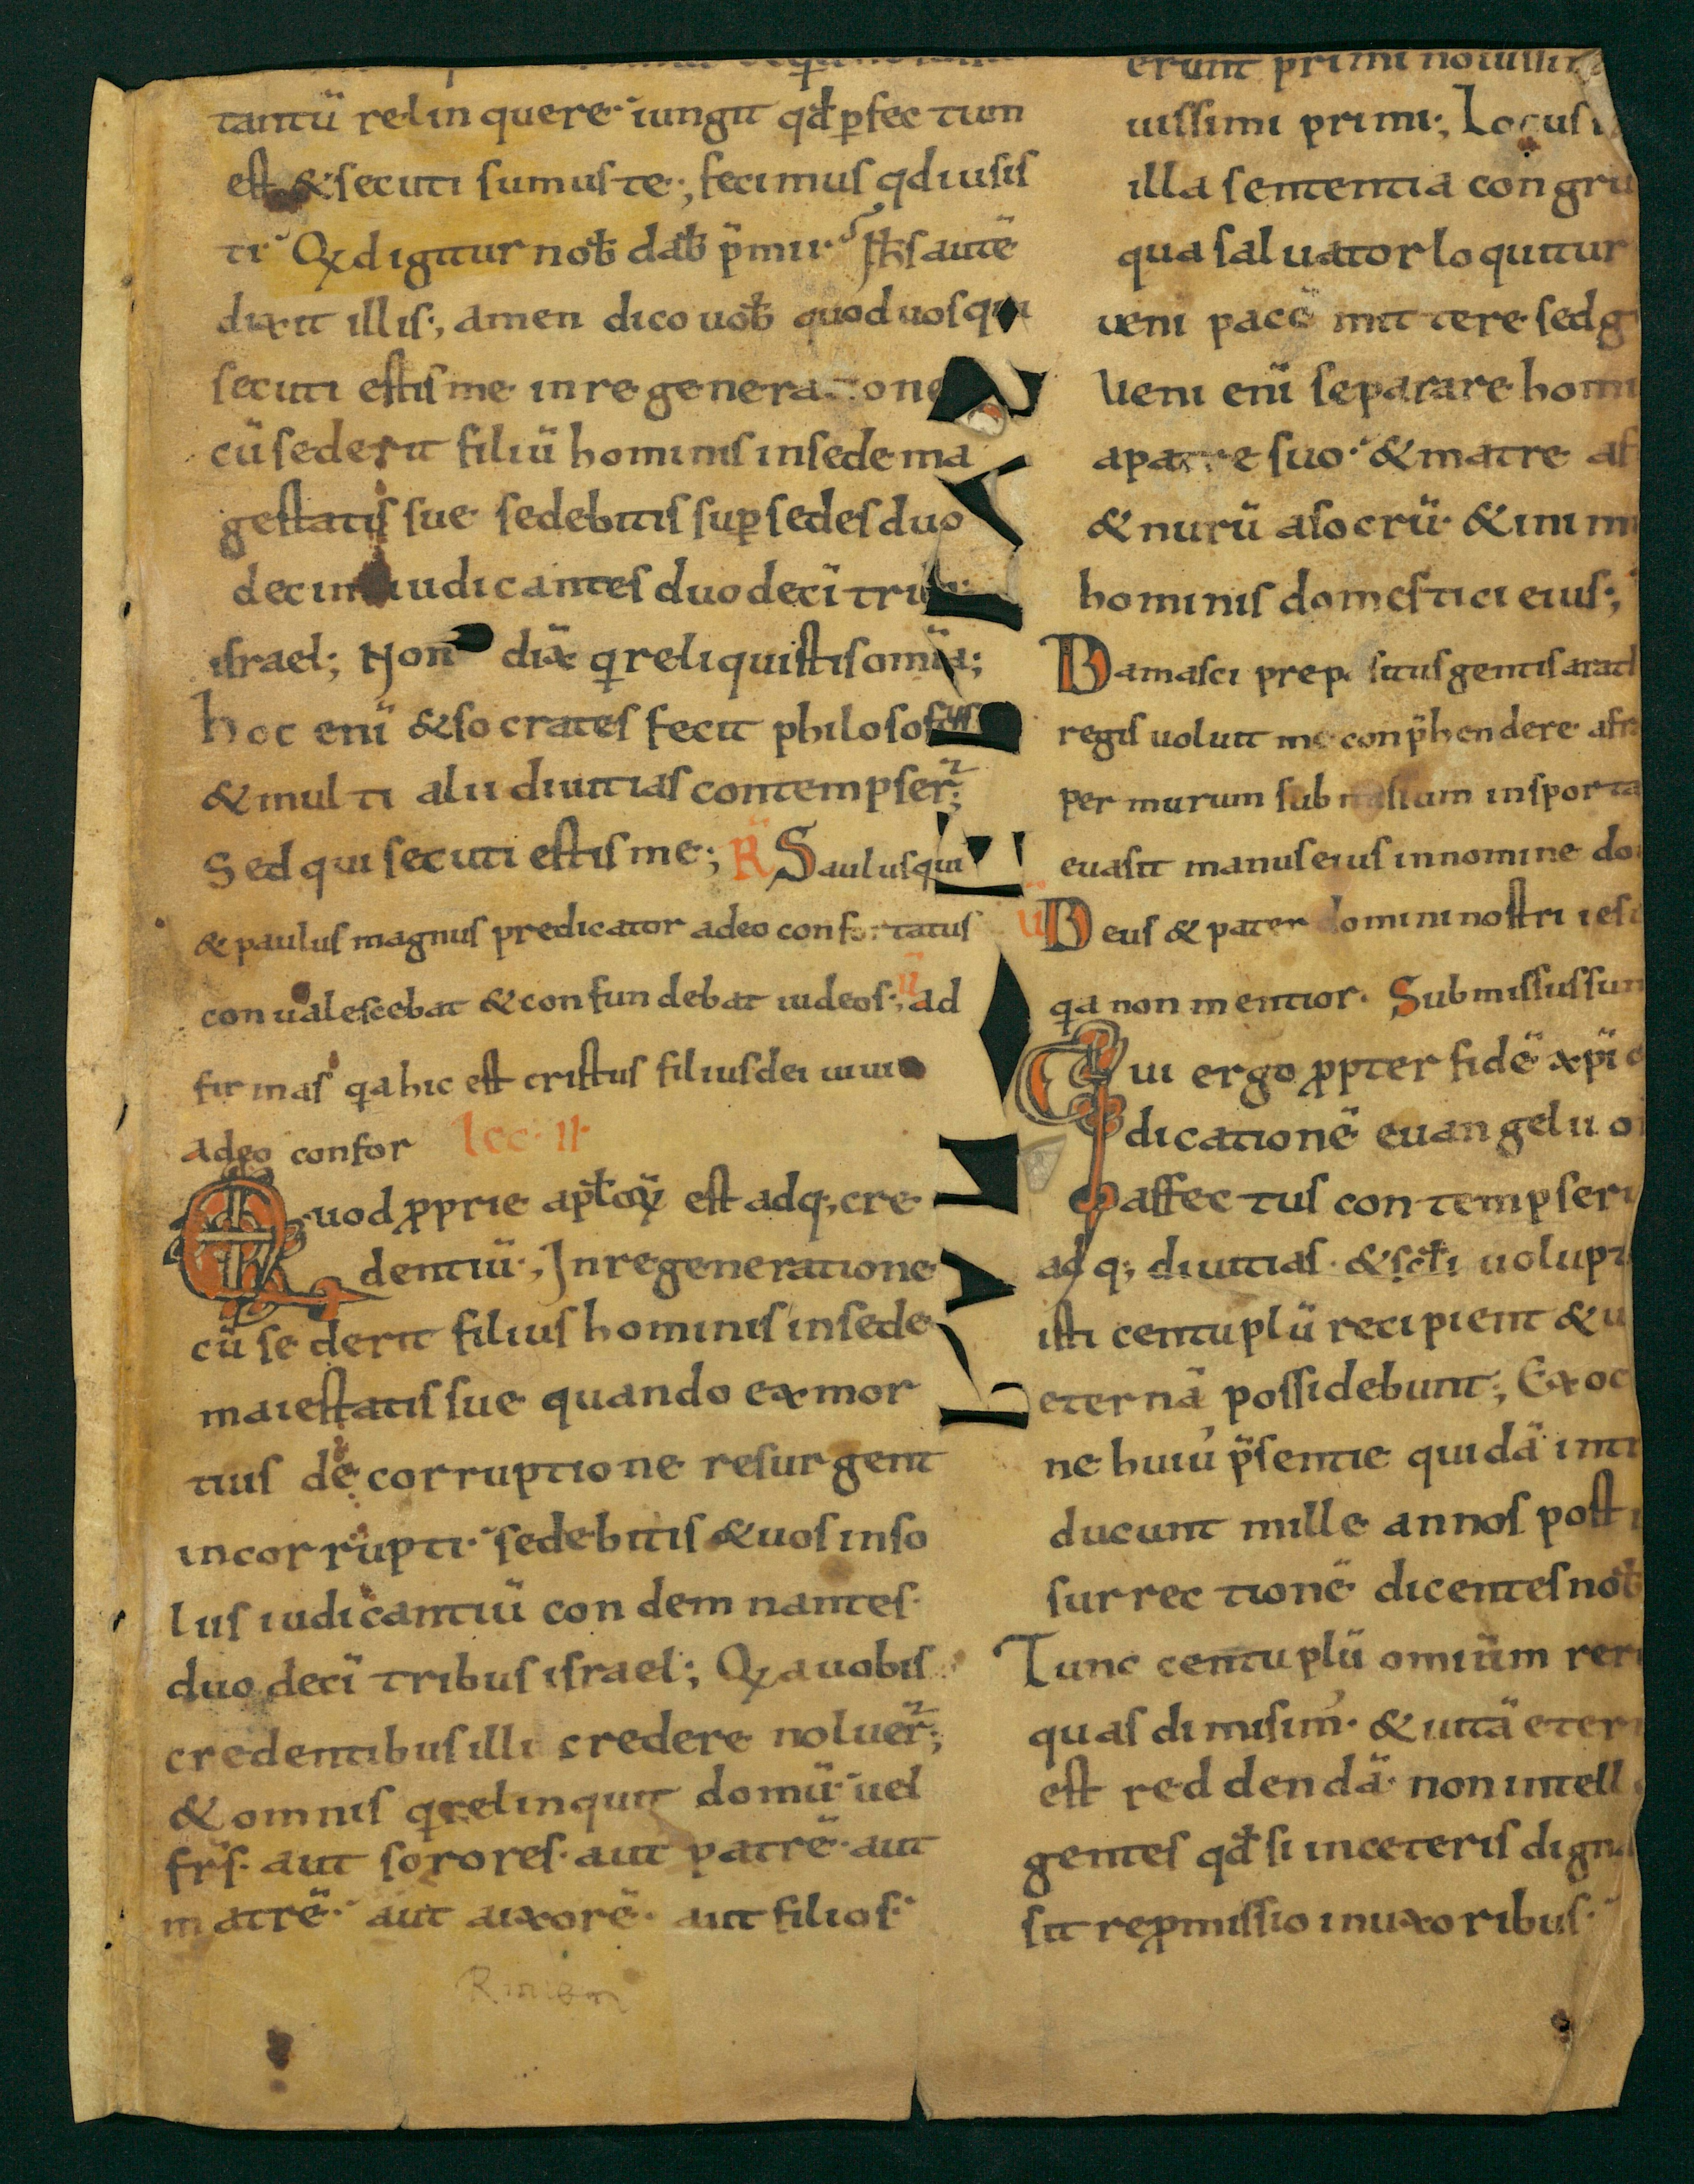 tantū relinquere· iungit qđ perfectum
est &secuti sumus te·, fecimus qd iusis
ti· Qd igitur nob̄ dab̄ p̄mii· Ih̄s autē
dixit illis·, amen dico uob̄ quod uos qui
secuti estis me in regeneratione
cū sederit filiū hominis in sede ma
gestatis sue sedebitis sup sedes duo
decim iudicantes duodecī trib
israel; Non dix̄ q reliquistis omīa;
hoc enī & socrates fecit philosofus
& multi alii diuitias contempser̄;
Sed qui secuti estis me; R̄ Saulus qui
& paulus magnus predicator adeo confortatus
conualescebat & confundebat iudeos·, ū ad
firmas qa hic est cristus filius dei uiui
adeo confor lec· II·
Quod p̱prie apl̄oꝝ est adq; cre
dentiū·, In regeneratione
cū sederit filius hominis in sede
maiestatis sue quando ex mor
tuis de corruptione resurgent
incorrupti· sedebitis & uos in so
liis iudicantiū condemnantes·
duodecī tribus israel; Qa uobis
credentibus illi credere noluer̄·,
& omnis q relinquit domū· uel
fr̄s· aut sorores· aut patrē· aut
matrē· aut uxorē· aut filios·
Rmiem
erunt primi nouissimi
uissimi primi·, Locus
illa sententia congru
qua saluator loquitur
ueni pacē mittere sed g
Ueni enī separare homi
a patre suo· & matre a f
& nurū a socrū· & inimi
hominis domestici eius·,
Damasci prepositus gentis arath
regis uoluit me conp̄hendere a fr
per murum submissum in sporta
euasit manus eius in nomine do
ū Deus & pater domini nostri iesu
qa non mentior· Submissus sum
Qui ergo p̱pter fidē xp̄i &
p̱dicationē euangelii o
affectus contempseru
adq; diuitias· & sc̄l̄i uolupt
isti centuplū recipient & u
eternā possidebunt·, Ex oc
ne huiu' p̄sentie quidā inti
ducunt mille annos post
surrectionē dicentes nob̄
Tunc centuplū omiūm rer
quas dimisim'· & uitā eter
est reddendā· non intell
gentes qđ si in ceteris digna
sit rep̱missio in uxoribus·